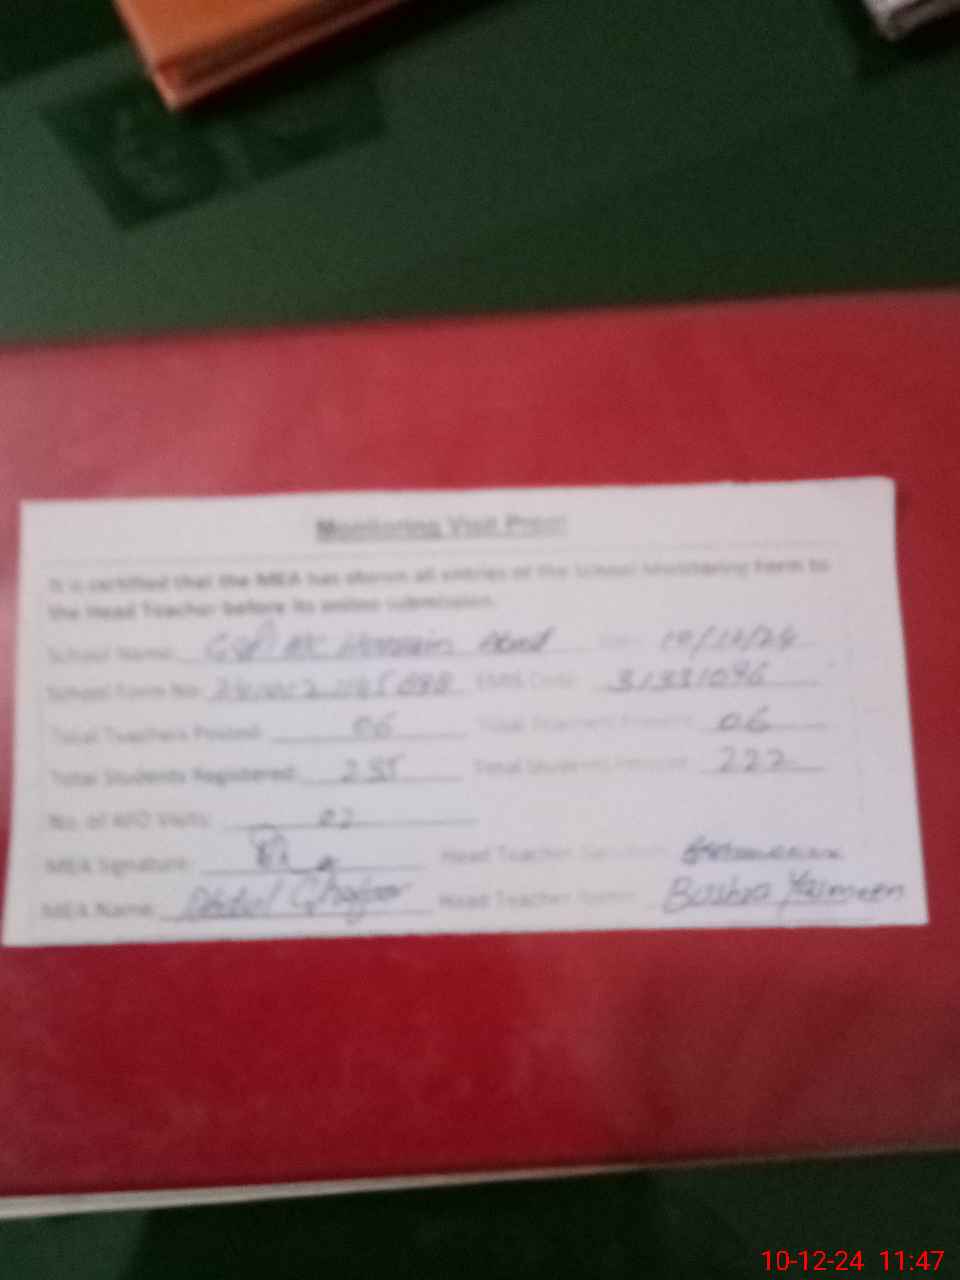 Monitoring Visit Proof
It is certified that the MEA has shown all entries of the School Monitoring Form to
the Head Teacher before its online submission.
School Name: Hussain Abad 10/12/24
School Form No: EMIS Code: 31331096
Total Teachers Posted: 06 Total Teachers Present: 06
Total Students Registered: Total Students Present: 222
No. of AEO Visits:
MEA Signature: Head Teacher Signature:
MEA Name: Abdul Ghafoor Head Teacher Name: Bushra Yasmeen
10-12-24 11:47